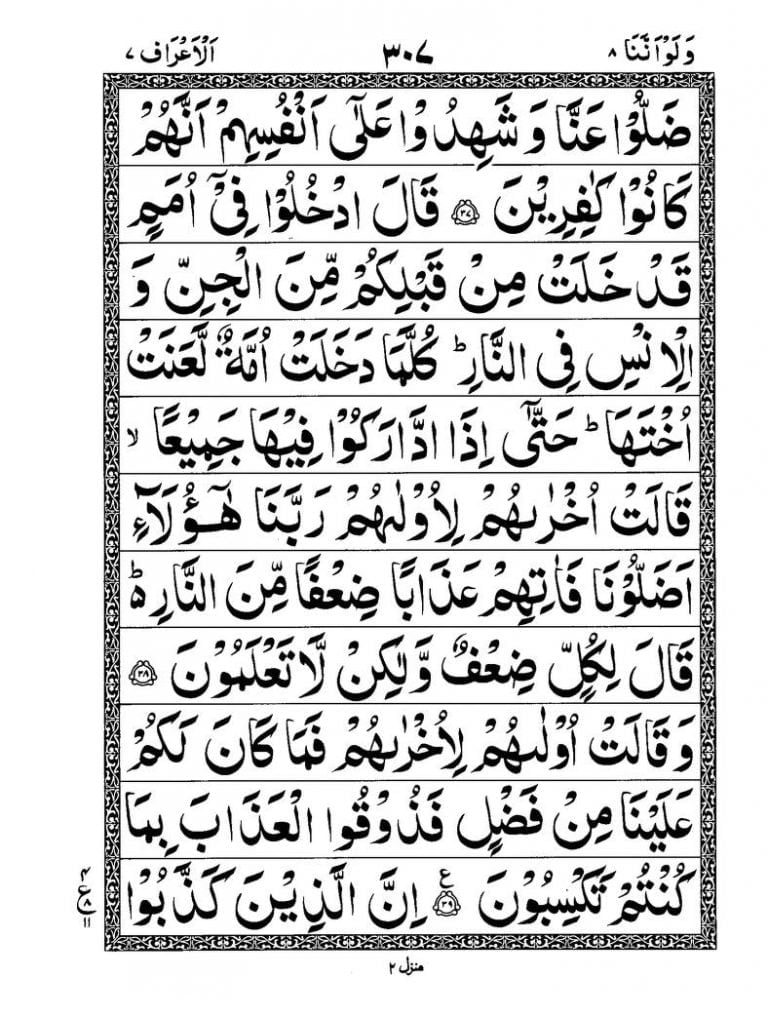 وَلَوْ اَنَّنَا ٨
٣٠٧
اَلْاَعْرَاف ٧
ضَلُّوْا عَنَّا وَ شَهِدُوْا عَلٰۤى اَنْفُسِهِمْ اَنَّهُمْ
كَانُوْا كٰفِرِيْنَ ٣٧ قَالَ ادْخُلُوْا فِيْۤ اُمَمٍ
قَدْ خَلَتْ مِنْ قَبْلِكُمْ مِّنَ الْجِنِّ وَ
الْاِنْسِ فِى النَّارِ ؕ كُلَّمَا دَخَلَتْ اُمَّةٌ لَّعَنَتْ
اُخْتَهَا ؕ حَتّٰۤى اِذَا ادَّارَكُوْا فِيْهَا جَمِيْعًا ۙ
قَالَتْ اُخْرٰىهُمْ لِاُوْلٰىهُمْ رَبَّنَا هٰۤؤُلَآءِ
اَضَلُّوْنَا فَاٰتِهِمْ عَذَابًا ضِعْفًا مِّنَ النَّارِ ۬ؕ
قَالَ لِكُلٍّ ضِعْفٌ وَّلٰكِنْ لَّا تَعْلَمُوْنَ ٣٨
وَقَالَتْ اُوْلٰىهُمْ لِاُخْرٰىهُمْ فَمَا كَانَ لَكُمْ
عَلَيْنَا مِنْ فَضْلٍ فَذُوْقُوا الْعَذَابَ بِمَا
كُنْتُمْ تَكْسِبُوْنَ ٣٩ ع اِنَّ الَّذِيْنَ كَذَّبُوْا
۴
ع ٨
١١
منزل ٢